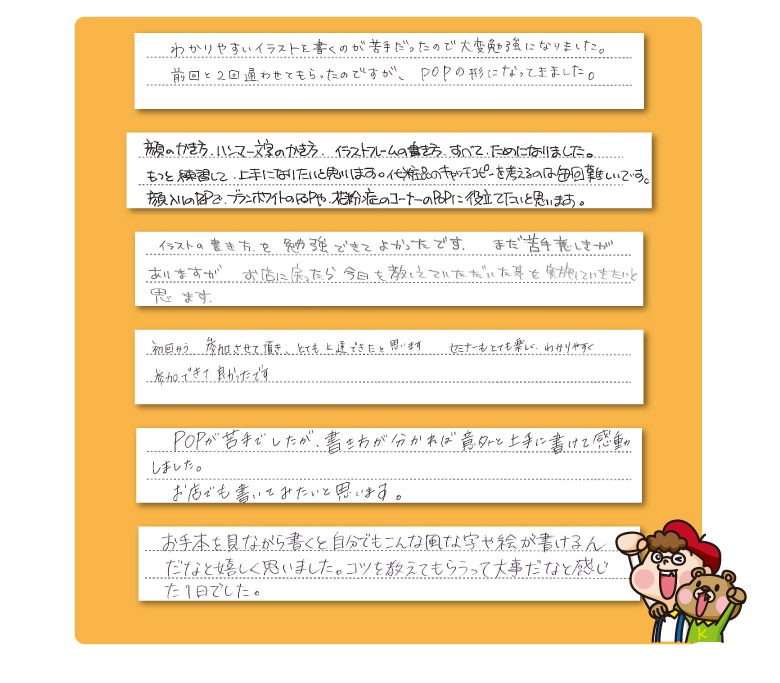 わかりやすいイラストを書くのが苦手だったので大変勉強になりました。
前回と2回通わせてもらったのですが、POPの形になってきました。
顔のかき方、ハンマー文字のかき方、イラストフレームの書き方、すべて、ためになりました。
もっと練習して、上手になりたいと思います。化粧品のキャッチコピーを考えるのは毎回難しいです。
顔入りのPOPで、ブランホワイトのPOPや、花粉症のコーナーのPOPに役立てたいと思います。
イラストの書き方を勉強できてよかったです。まだ苦手意しきが
ありますが お店に戻ったら今日を教えていただいた事を実施していきたいと
思います。
初回から 参加させて頂き、とても上達できたと思います セミナーもとても楽しく、わかりやすく
参加できて良かったです
POPが苦手でしたが、書き方が分かれば意外と上手に書けて感動
しました。
お店でも書いてみたいと思います。
お手本を見ながら書くと自分でもこんな風な字や絵が書けるん
だなと嬉しく思いました。コツを教えてもらうって大事だなと感じ
た1日でした。
K